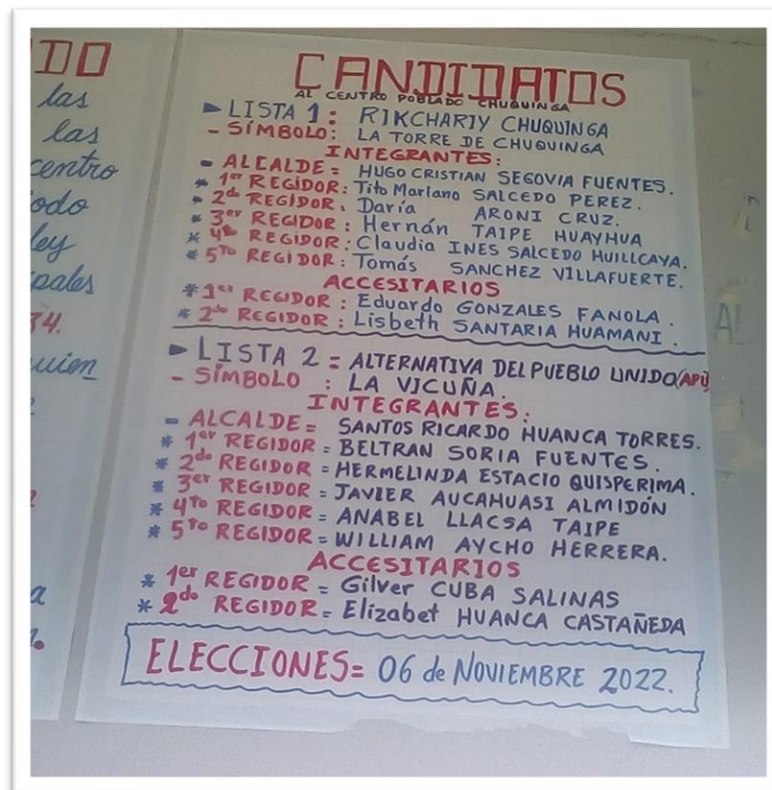 DO
las
las
centro
odo
ley
pales
34.
uien
a
CANDIDATOS
AL CENTRO POBLADO CHUQUINGA
► LISTA 1: RIKCHARIY CHUQUINGA
- SÍMBOLO: LA TORRE DE CHUQUINGA
INTEGRANTES:
- ALCALDE = HUGO CRISTIAN SEGOVIA FUENTES.
* 1er REGIDOR: Tito Mariano SALCEDO PEREZ.
* 2do REGIDOR. Daría ARONI CRUZ.
* 3er REGIDOR: Hernán TAIPE HUAYHUA
* 4to REGIDOR: Claudia INES SALCEDO HUILLCAYA.
* 5TO REGIDOR: Tomás SANCHEZ VILLAFUERTE.
ACCESITARIOS
* 1er REGIDOR: Eduardo GONZALES FANOLA.
* 2do REGIDOR: Lisbeth SANTARIA HUAMANI.
► LISTA 2 = ALTERNATIVA DEL PUEBLO UNIDO (APU)
- SÍMBOLO : LA VICUÑA.
INTEGRANTES:
- ALCALDE = SANTOS RICARDO HUANCA TORRES.
* 1er REGIDOR = BELTRAN SORIA FUENTES.
* 2do REGIDOR = HERMELINDA ESTACIO QUISPERIMA.
* 3er REGIDOR = JAVIER AUCAHUASI ALMIDÓN
* 4TO REGIDOR = ANABEL LLACSA TAIPE
* 5TO REGIDOR = WILLIAM AYCHO HERRERA.
ACCESITARIOS
* 1er REGIDOR = Gilver CUBA SALINAS
* 2do REGIDOR = Elizabet HUANCA CASTAÑEDA
ELECCIONES= 06 de NOVIEMBRE 2022.
AL